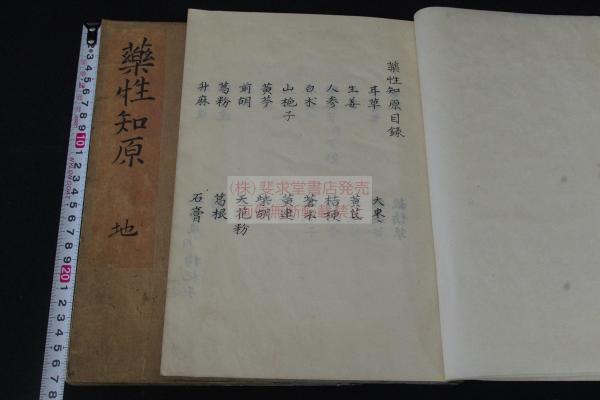 藥性知原
地
藥性知原目録
耳草 大枣
生姜 黄芪
人参 桔梗
白木 蒼木
山梔子 黄連
黄芩 柴胡
前胡 天花粉
葛粉 葛根
升麻 石膏
(株)斐求堂書店発売